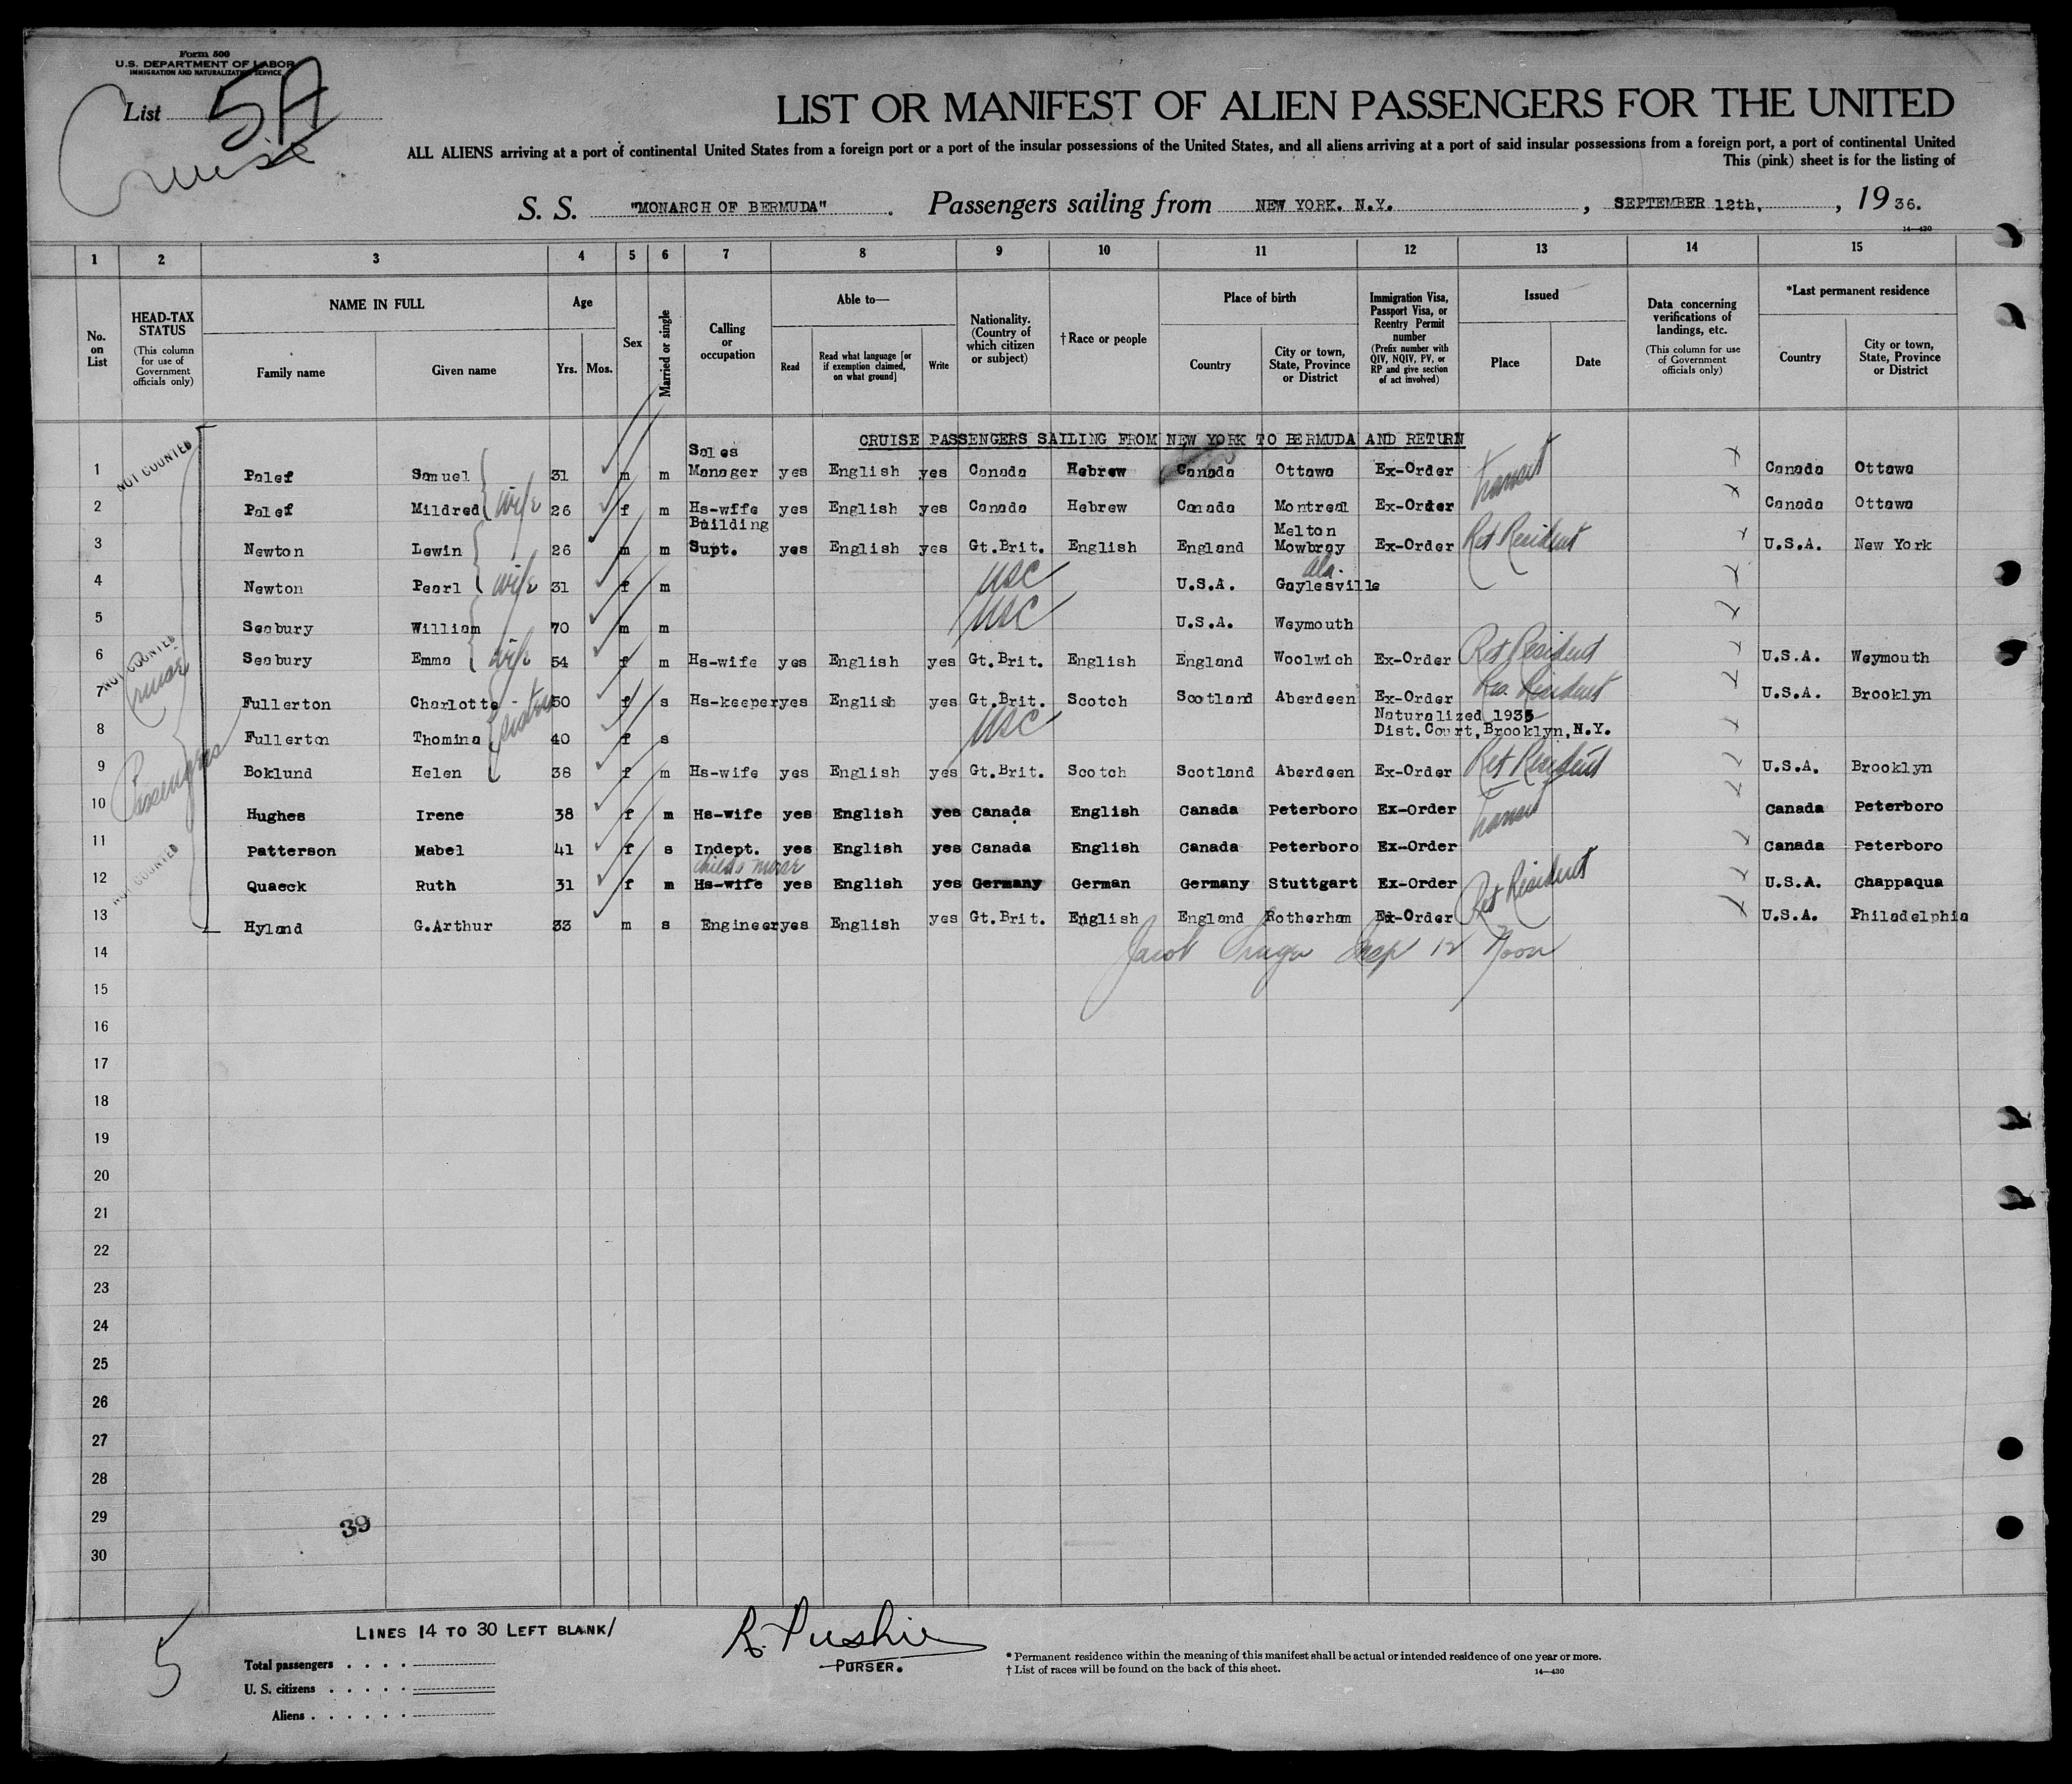 Form 500
U.S. DEPARTMENT OF LABOR
IMMIGRATION AND NATURALIZATION SERVICE
List 5A
Cruise
LIST OR MANIFEST OF ALIEN PASSENGERS FOR THE UNITED
ALL ALIENS arriving at a port of continental United States from a foreign port or a port of the insular possessions of the United States, and all aliens arriving at a port of said insular possessions from a foreign port, a port of continental United
This (pink) sheet is for the listing of
S. S. "MONARCH OF BERMUDA". Passengers sailing from NEW YORK. N.Y., SEPTEMBER 12th, , 19 36.
14—430
1 2 3 4 5 6 7 8 9 10 11 12 13 14 15
No. on List
HEAD-TAX STATUS (This column for use of Government officials only)
NAME IN FULL
Family name Given name
Age
Yrs. Mos.
Sex
Married or single
Calling or occupation
Able to—
Read Read what language [or if exemption claimed, on what ground] Write
Nationality. (Country of which citizen or subject)
† Race or people
Place of birth
Country City or town, State, Province or District
Immigration Visa, Passport Visa, or Reentry Permit number (Prefix number with QIV, NQIV, PV, or RP and give section of act involved)
Issued
Place Date
Data concerning verifications of landings, etc. (This column for use of Government officials only)
*Last permanent residence
Country City or town, State, Province or District
CRUISE PASSENGERS SAILING FROM NEW YORK TO BERMUDA AND RETURN
NOT COUNTED
1 Palef Samuel 31 m m Sales Manager yes English yes Canada Hebrew Canada Ottawa Ex-Order Transit Canada Ottawa
2 Palef Mildred wife 26 f m Hs-wffe yes English yes Canada Hebrew Canada Montreal Ex-Order Canada Ottawa
3 Newton Lewin 26 m m Building Supt. yes English yes Gt.Brit. English England Melton Mowbray Ex-Order Ret Resident U.S.A. New York
4 Newton Pearl wife 31 f m USC U.S.A. Gaylesville Ala.
5 Seabury William 70 m m USC U.S.A. Weymouth
NOT COUNTED
Cruise
Passengers
6 Seabury Emma wife 54 f m Hs-wife yes English yes Gt.Brit. English England Woolwich Ex-Order Ret Resident U.S.A. Weymouth
7 Fullerton Charlotte 50 f s Hs-keeper yes English yes Gt.Brit. Scotch Scotland Aberdeen Ex-Order Res. Resident U.S.A. Brooklyn
8 Fullerton Thomina sisters 40 f s USC Naturalized 1935 Dist.Court, Brooklyn, N.Y.
9 Boklund Helen 38 f m Hs-wife yes English yes Gt.Brit. Scotch Scotland Aberdeen Ex-Order Ret Resident U.S.A. Brooklyn
10 Hughes Irene 38 f m Hs-wife yes English yes Canada English Canada Peterboro Ex-Order Transit Canada Peterboro
11 Patterson Mabel 41 f s Indept. yes English yes Canada English Canada Peterboro Ex-Order Canada Peterboro
NOT COUNTED
12 Quaeck Ruth 31 f m childs nurse Hs-wife yes English yes Germany German Germany Stuttgart Ex-Order Ret Resident U.S.A. Chappaqua
13 Hyland G.Arthur 33 m s Engineer yes English yes Gt.Brit. English England Rotherham Ex-Order U.S.A. Philadelphia
14 Jacob Insp 12 Noon
15
16
17
18
19
20
21
22
23
24
25
26
27
28
29
39
30
LINES 14 TO 30 LEFT BLANK/
5
R. Pushie
PURSER.
Total passengers
U. S. citizens
Aliens
* Permanent residence within the meaning of this manifest shall be actual or intended residence of one year or more.
† List of races will be found on the back of this sheet.
14—430